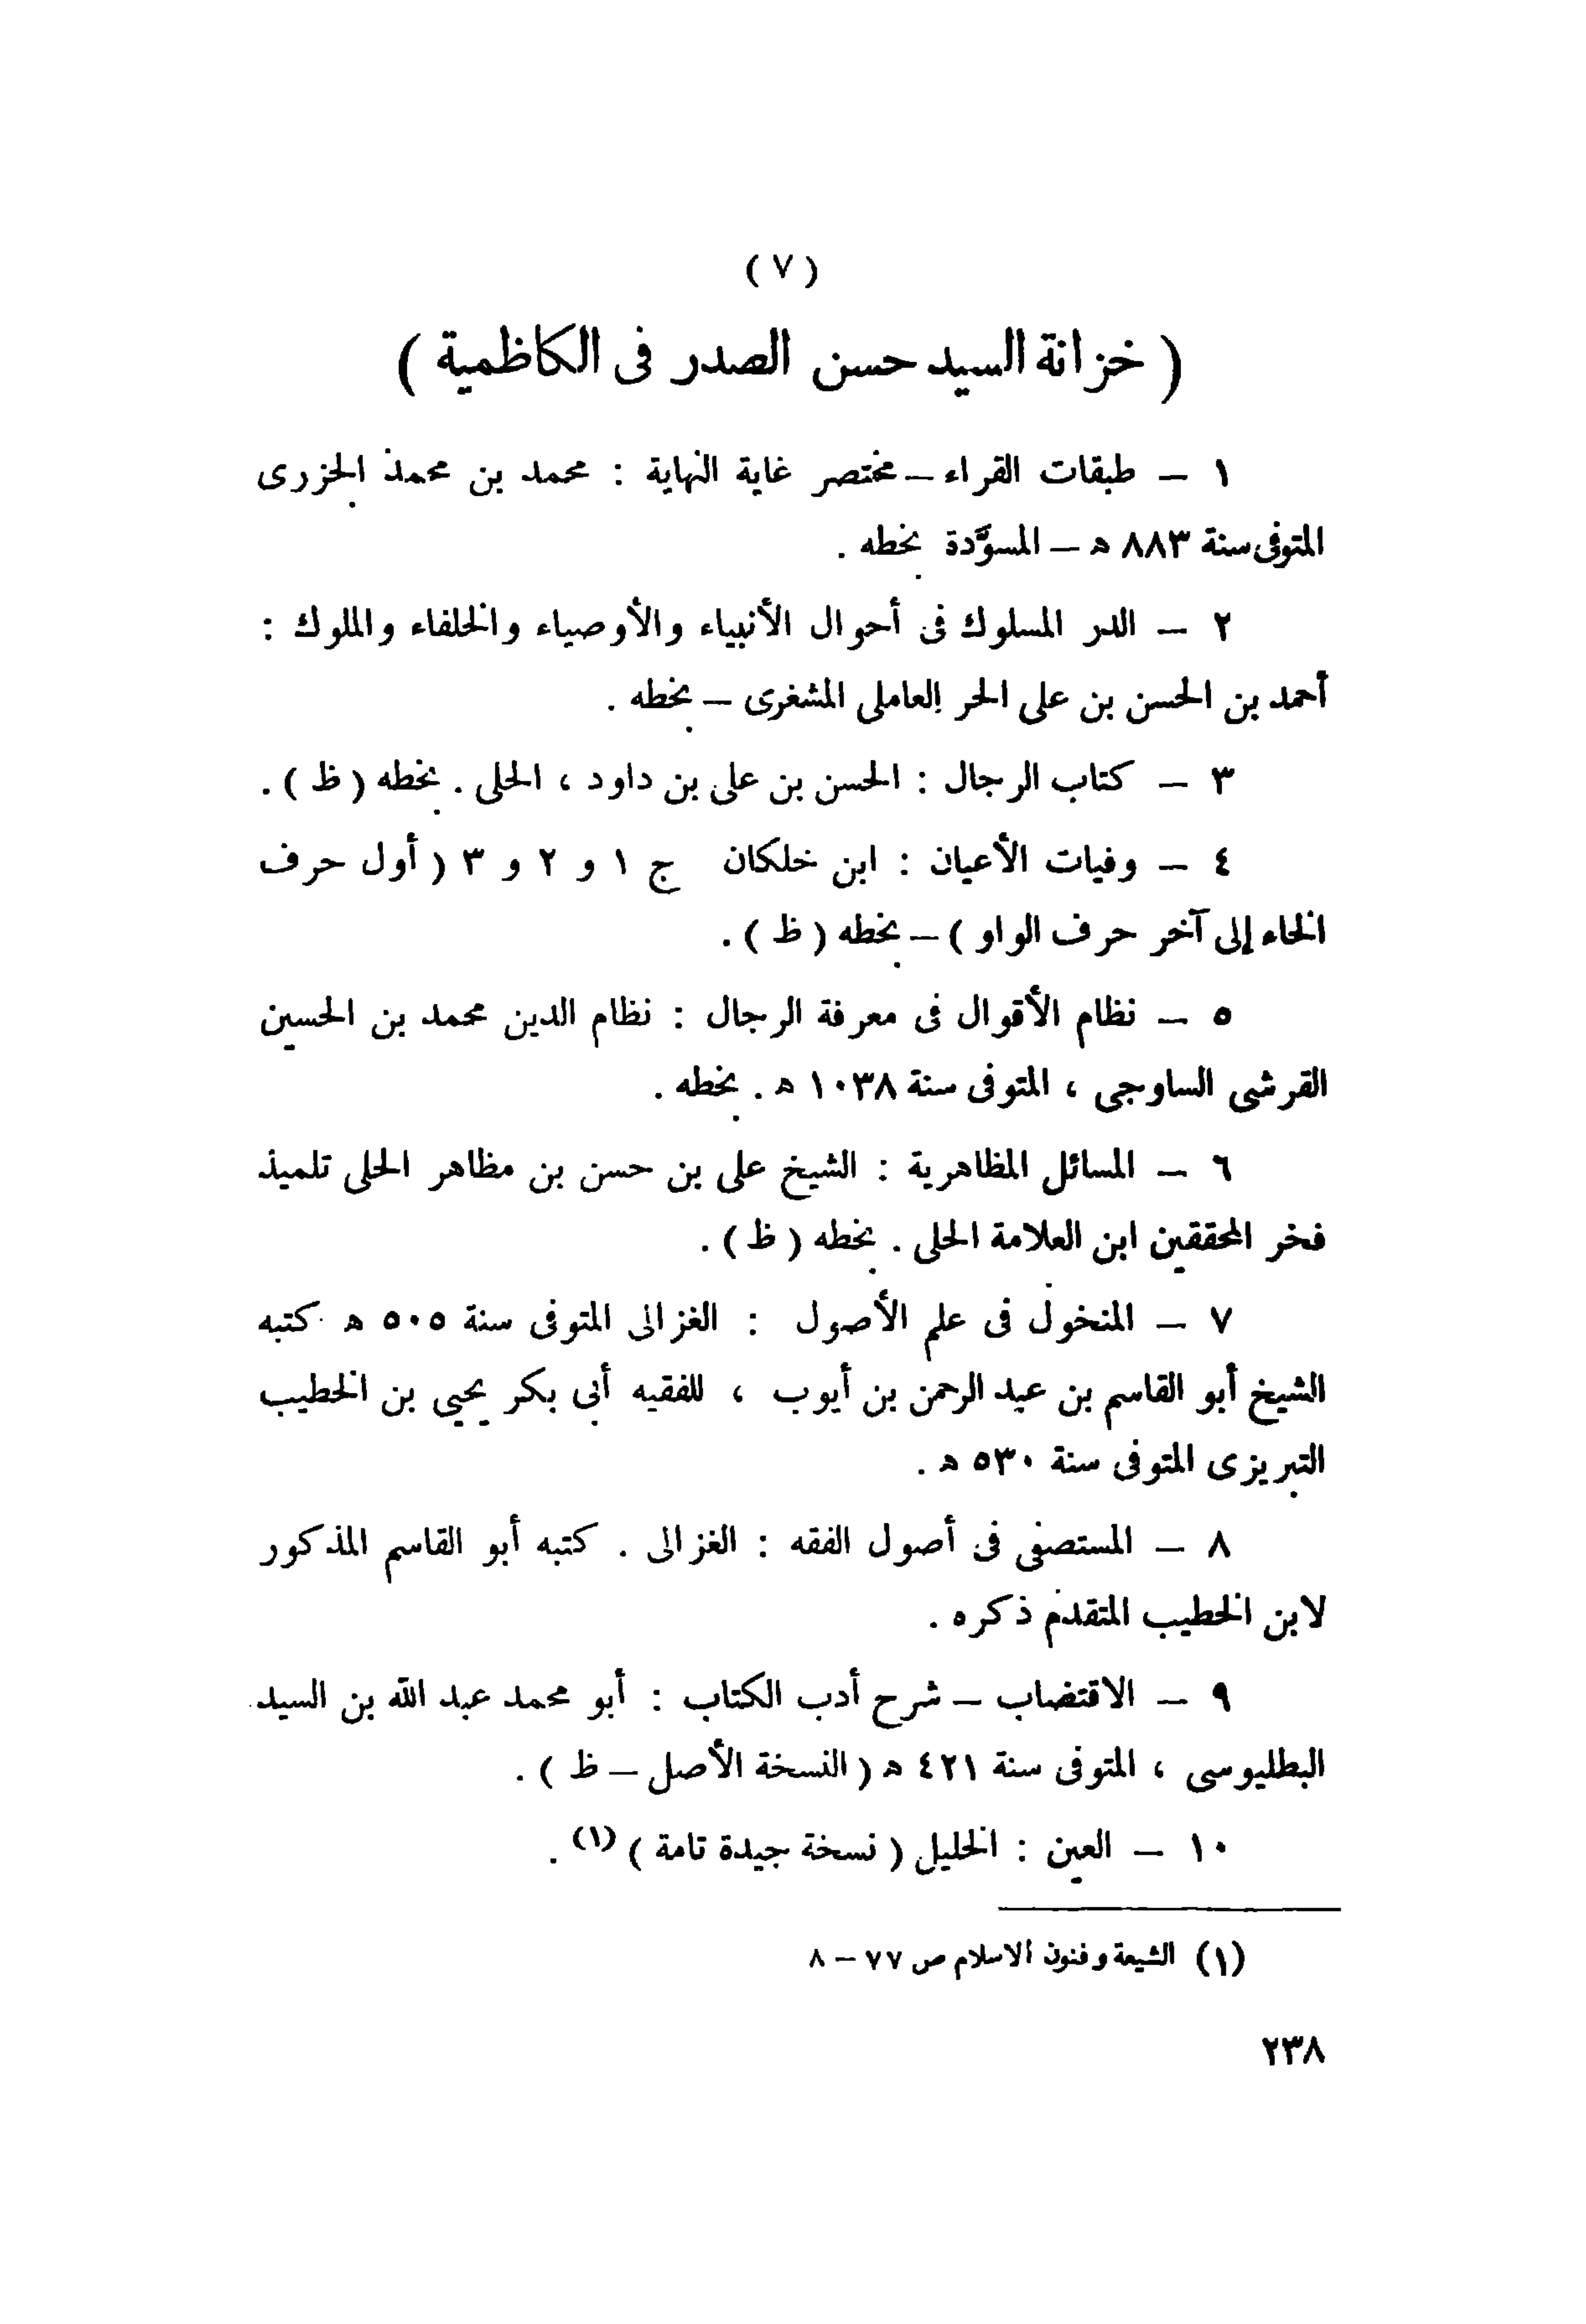 ( ٧ )
( خزانة السيد حسن الصدر فى الكاظمية )
١ – طبقات القراء – مختصر غاية النهاية : محمد بن محمد الجزرى
المتوفى سنة ٨٨٣ هـ – المسوَّدة بخطه .
٢ – الدر المسلوك فى أحوال الأنبياء والأوصياء والخلفاء والملوك :
أحمد بن الحسن بن على الحر العاملى المشغرى – بخطه .
٣ – كتاب الرجال : الحسن بن على بن داود ، الحلى . بخطه ( ظ ) .
٤ – وفيات الأعيان : ابن خلكان ج ١ و ٢ و ٣ ( أول حرف
الخاء إلى آخر حرف الواو ) – بخطه ( ظ ) .
٥ – نظام الأقوال فى معرفة الرجال : نظام الدين محمد بن الحسين
القرشى الساوجى ، المتوفى سنة ١٠٣٨ هـ . بخطه .
٦ – المسائل المظاهرية : الشيخ على بن حسن بن مظاهر الحلى تلميذ
فخر المحققين ابن العلامة الحلى . بخطه ( ظ ) .
٧ – المنخول فى علم الأصول : الغزالى المتوفى سنة ٥٠٥ هـ كتبه
الشيخ أبو القاسم بن عبد الرحمن بن أيوب ، للفقيه أبى بكر يحيى بن الخطيب
التبريزى المتوفى سنة ٥٣٠ هـ .
٨ – المستصفى فى أصول الفقه : الغزالى . كتبه أبو القاسم المذكور
لابن الخطيب المتقدم ذكره .
٩ – الاقتضاب – شرح أدب الكتاب : أبو محمد عبد الله بن السيد
البطليوسى ، المتوفى سنة ٤٢١ هـ ( النسخة الأصل – ظ ) .
١٠ – العين : الخليل ( نسخة جيدة تامة ) (١) .
(١) الشيعة وفنون الاسلام ص ٧٧ – ٨
٢٣٨